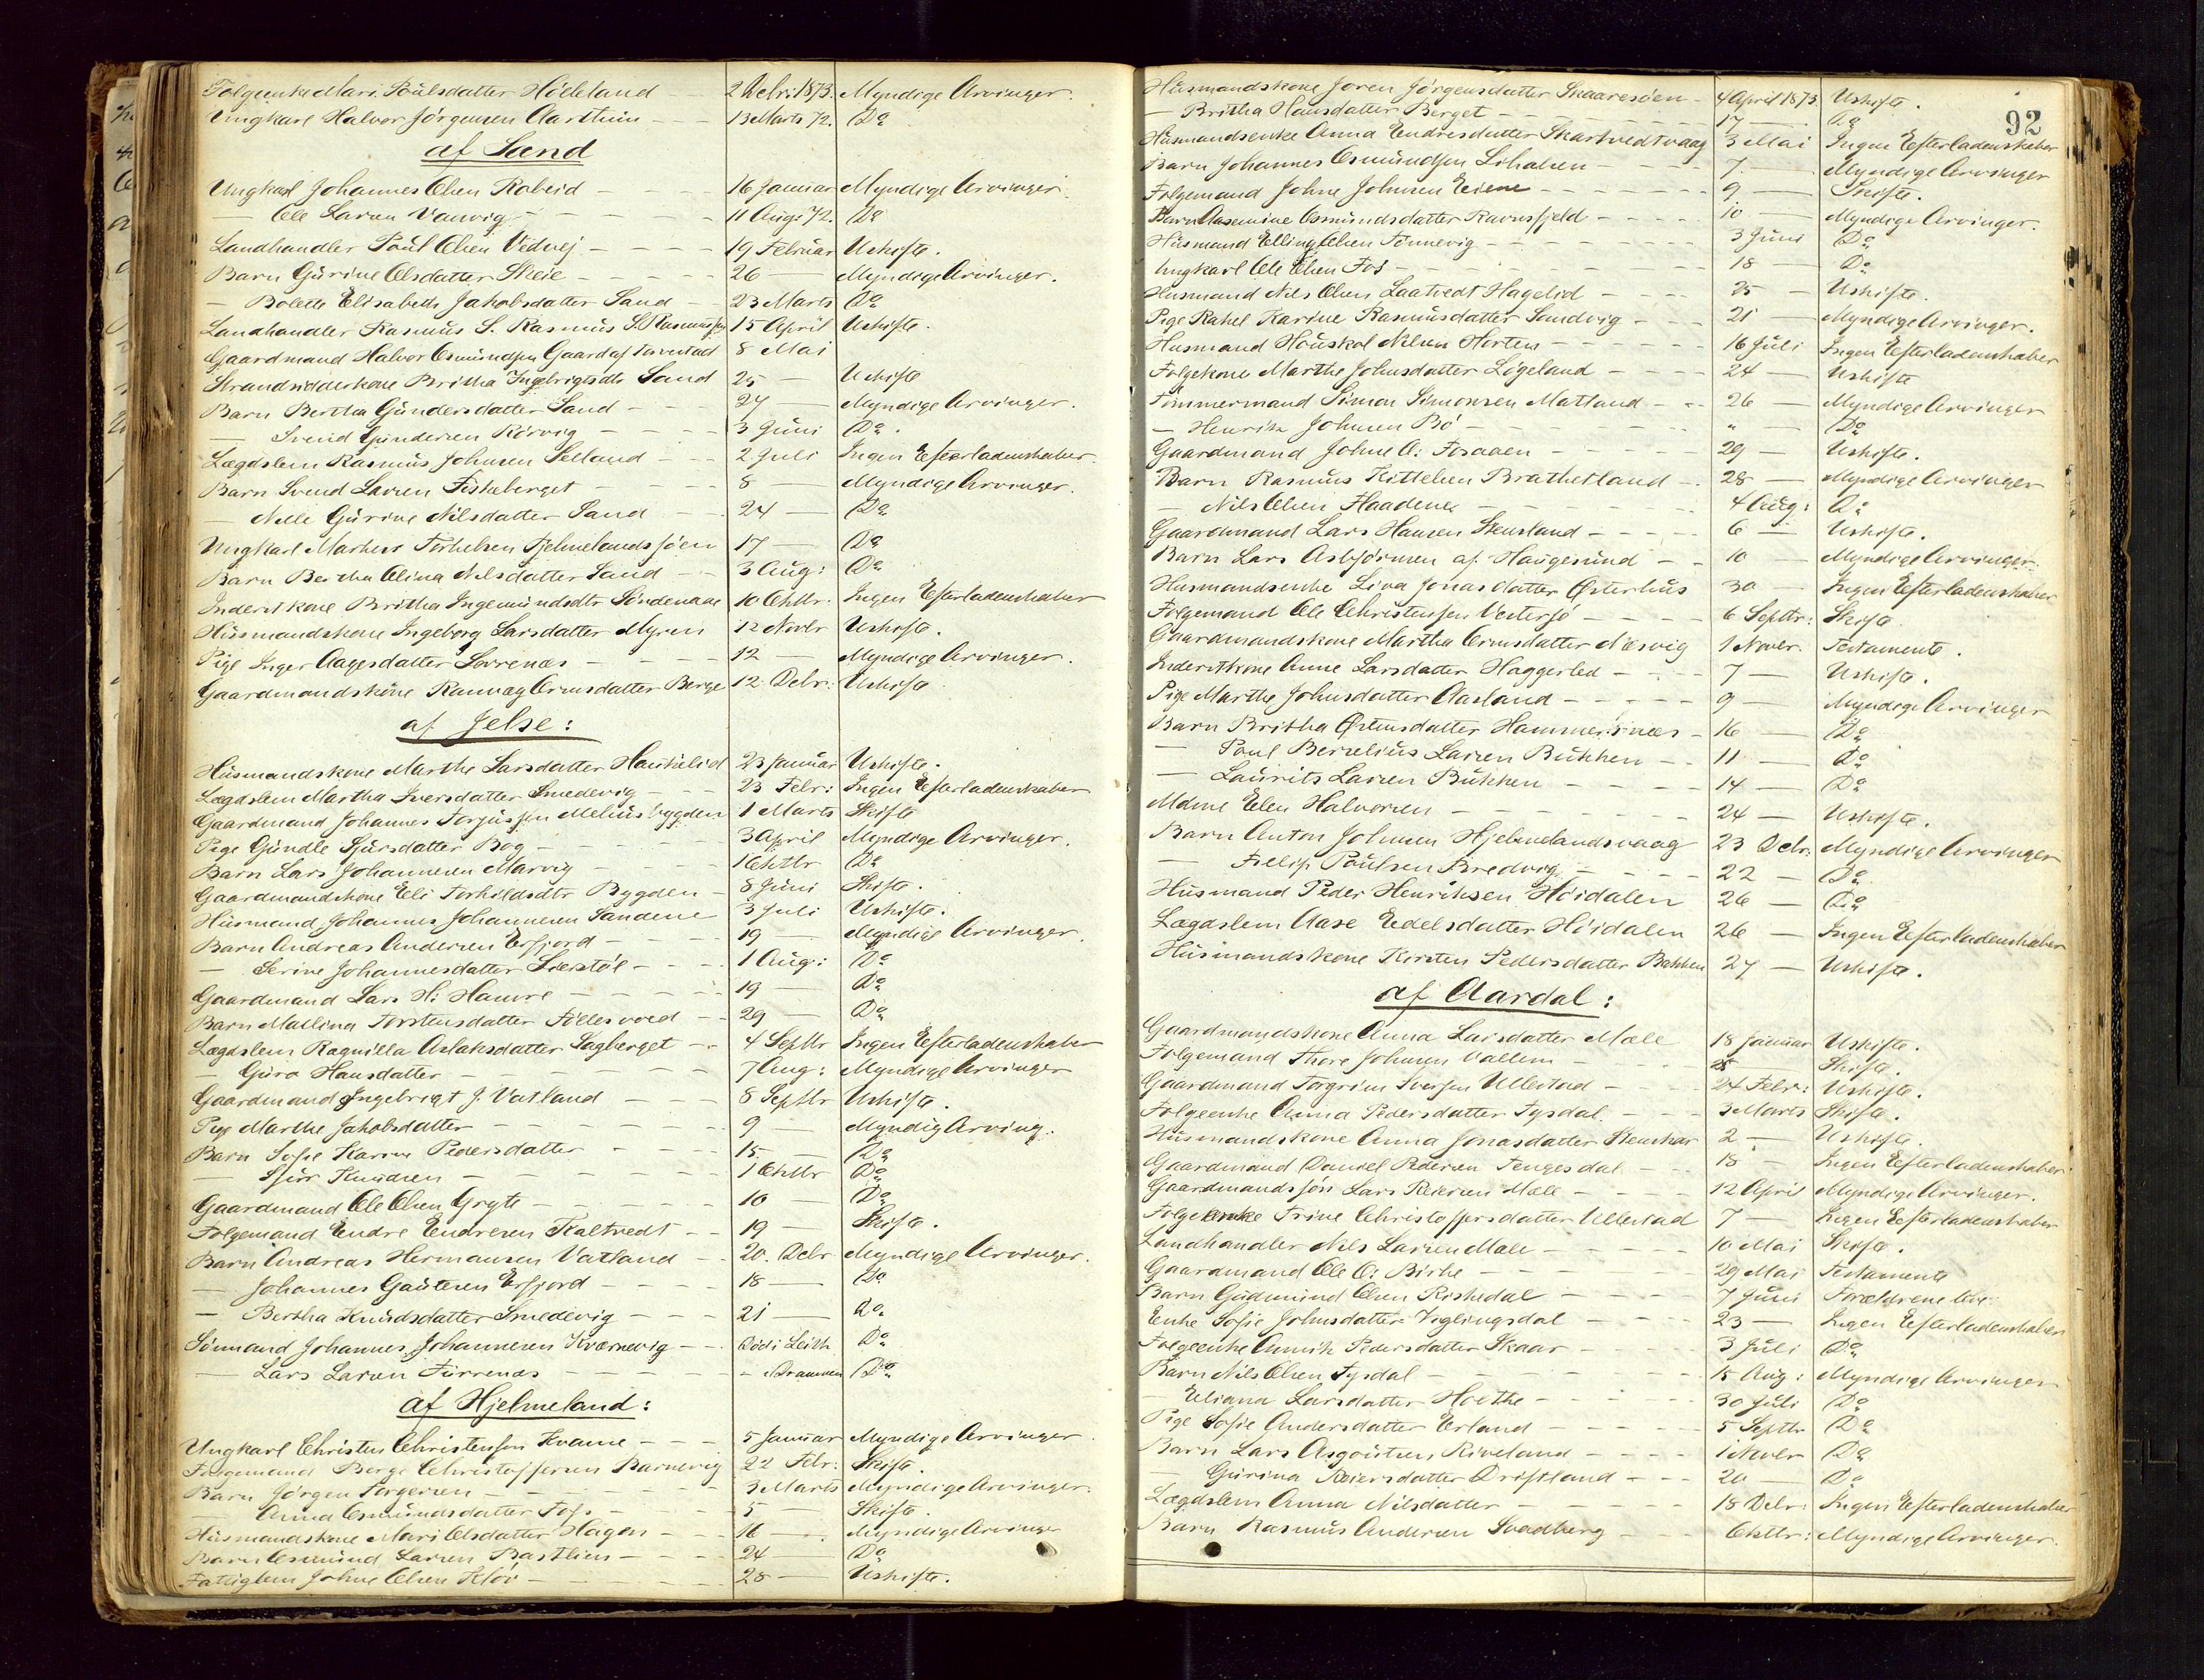 Folgeenke Mari Poulsdatter Hölland 2 Debr: 1873. Myndige Arvinger.
Ungkarl Halvor Jörgensen Aarthun 13 Marts 72. Do
af Sand
Ungkarl Johannes Olsen Rabeid 16 Januar Myndige Arvinger.
— Ole Larsen Vanvig 11 Aug: 72. Do
Landhandler Poul Olsen Vidvej 19 Februar Uskifte.
Barn Gürine Olsdatter Skeie 26 — Myndige Arvinger.
— Bolette Elisabeth Jakobsdatter Sand 23 Marts Do
Landhandler Rasmus S. Rasmus S. Rasmussen 15 April Uskifte.
Gaardmand Halvor Osmundsen Gaard af Torvestad 8 Mai
Strandsidderkone Britha Ingebrigtsdtr Sand 25 — Uskifte
Barn Bertha Gundersdatter Sand 27 — Myndige Arvinger.
— Svend Gundersen Rörvig 3 Juni Do.
Lægdslem Rasmus Johnsen Selland 2 Juli Ingen Efterladenskaber.
Barn Svend Larsen Fiskeberget 8 — Myndige Arvinger.
— Nelle Gurine Nilsdatter Sand 24 — Do
Ungkarl Markus Torkelsen Hjelmelandssjöen 17 — Do
Barn Bertha Olina Nilsdatter Sand 3 Aug: Do
Inderstkone Britha Ingemundsdtr Söndenaae 10 Oktbr. Ingen Efterladenskaber
Husmandskone Ingeborg Larsdatter Myren 12 Novbr Uskifte.
Pige Inger Aagesdatter Lovrenæs 12 — Myndige Arvinger.
Gaardmandskone Ranvæg Ormsdatter Berge 12 Debr: Uskifte
af Jelse:
Husmandskone Marthe Larsdatter Haukelid 23 Januar Uskifte.
Lægdslem Martha Iversdatter Smedevig 23 Febr: Ingen Efterladenskaber
Gaardmand Johannes Torjussen Meliusbygden 1 Marts Skifte
Pige Gundle Sjursdatter Bog 3 April Myndige Arvinger.
Barn Lars Johannesen Marvig 1 Oktbr Do
Gaardmandskone Eli Torkildsdtr Bygden 8 Juni Skifte.
Husmand Johannes Johannesen Sandene 3 Juli Uskifte.
Barn Andreas Andersen Erfjord 19 — Myndige Arvinger.
— Serine Johannesdatter Lierstöl 1 Aug: Do
Gaardmand Lars H: Hamre 19 — Do
Barn Mallina Torstensdatter Föllesvoed 29 — Do
Lægdslem Ragnilla Aslaksdatter Sagberget 4 Septbr Ingen Efterladenskaber
— Guro Hansdatter 7 Aug: Myndige Arvinger
Gaardmand Ingebrigt J. Vatland 8 Septbr Uskifte.
Pige Marthe Jakobsdatter 9 — Myndig Arving.
Barn Sofie Karine Pedersdatter 15. — Do
— Sjur Knudsen 1 Oktbr Do
Gaardmand Ole Olsen Gryte 10 — Do
Folgemand Endre Endresen Kaltvedt 19 — Skifte.
Barn Andreas Hermansen Vatland 20. Debr Myndige Arvinger.
— Johannes Gautesen Erfjord 18 — Do
— Bertha Knudsdatter Smedevig 21 — Do
Sömand Johannes Johannesen Kvernevig Död i Leith Do
— Lars Larsen Furrenæs — Drammen Do
af Hjelmeland:
Ungkarl Christen Christensen Kvame 5 Januar Myndige Arvinger.
Folgemand Berge Christoffersen Barnevig 22 Febr: Skifte.
Barn Jörgen Torgersen 3 Marts Myndige Arvinger.
— Anna Osmundsdatter Fos 5 — Skifte.
Husmandskone Mari Olsdatter Hagen 16 — Myndige Arvinger
Barn Osmund Larsen Bastlien 24 — Do
Fattiglem Johne Olsen Klöv 28 — Uskifte.
92
Husmandskone Joren Jörgensdatter Skaaresöen 4 April 1873. Uskifte.
— Britha Hansdatter Berget 17 — Do
Husmandsenke Anna Endresdatter Skartvedtvaag 3 Mai Ingen Efterladenskaber
Barn Johannes Osmundsen Lihalsen 7. — Myndige Arvinger
Folgemand Johne Johnsen Eiene 9 — Skifte.
Barn Aasemine Osmundsdatter Ravnsfjeld 10 — Myndige Arvinger.
Husmand Elling Olsen Finnevig 3 Juni Do
Ungkarl Ole Olsen Fos 18 — Do
Husmand Nils Olsen Laatvedt Hagelid 25 — Uskifte.
Pige Rakel Karine Rasmusdatter Sandvig 21 — Myndige Arvinger.
Husmand Houskol Nilsen Horten 16 Juli Ingen Efterladenskaber
Folgekone Marthe Johnsdatter Lögeland 24 — Uskifte
Timmermand Simon Simonsen Matland 26 — Myndige Arvinger
— Henrik Johnsen Bö " — Do
Gaardmand Johne O: Fosaaen 29 — Uskifte.
Barn Rasmus Kittelsen Brathetland 28 — Myndige Arvinger
— Nils Olsen Haadene 4 Aug: Do
Gaardmand Lars Hansen Stensland 6 — Uskifte.
Barn Lars Asbjörnsen af Haugesund 10 — Myndige Arvinger.
Husmandsenke Liva Jonasdatter Österhus 30 — Ingen Efterladenskaber
Folgemand Ole Christensen Vestersjö 6 Septbr: Skifte.
Gaardmandskone Martha Ormsdatter Næsvig 1 Novbr. Testamente.
Inderstkone Anne Larsdatter Haggerled 7 — Uskifte.
Pige Marthe Johnsdatter Aasland 9 — Myndige Arvinger
Barn Britha Östensdatter Hammersnæs 16 — Do
— Poul Berselius Larsen Bukken 11 — Do
— Laurits Larsen Bukken 14 — Do
Mdme Elen Halvorsen 24 — Uskifte.
Barn Anton Johnsen Hjelmelandsvaag 23 Debr: Myndige Arvinger
— Fillip Poulsen Bredvig 22 — Do
Husmand Peder Henriksen Höidalen 26 — Do
Lægdslem Aase Eedelsdatter Höidalen 26 — Ingen Efterladenskaber
Husmandskone Kirsten Pedersdatter Bakken 27 — Uskifte.
af Aardal:
Gaardmandskone Anna Larsdatter Mæle 18 Januar Uskifte.
Folgemand Thore Johnsen Vallem 28 Skifte.
Gaardmand Torgrim Iversen Ullestad 24 Febr: Uskifte.
Folgeenke Anna Pedersdatter Fysdal 3 Marts Skifte.
Husmandskone Anna Jonasdatter Stenskar 2 — Uskifte.
Gaardmand Daniel Pedersen Tengesdal 18 — Ingen Efterladenskaber.
Gaardmandssön Lars Reiersen Mæle 12 April Myndige Arvinger.
Folgeenke Trine Christoffersdatter Ullestad 7 — Ingen Efterladenskaber
Landhandler Nils Larsen Mæle 10 Mai Skifte.
Gaardmand Ole O: Birke 29 Mai Testamente
Barn Gudmund Olsen Riskedal 7 Juni Forældrene leve.
Enke Sofie Johnsdatter Viglingsdal 23 — Ingen Efterladenskaber
Folgeenke Annik Pedersdatter Skaar 3 Juli Do
Barn Nils Olsen Fysdal 15 Aug: Myndige Arvinger
— Eliana Larsdatter Hoethe 30 Juli Do
Pige Sofie Andersdatter Erland 5 Septbr Do
Barn Lars Asgoutsen Riveland 1 Novbr Do
— Gurina Reiersdatter Driftland 20 — Do
Lægdslem Anna Nilsdatter 18 Debr: Ingen Efterladenskaber
Barn Rasmus Andersen Svadberg Oktbr: Myndige Arvinger.